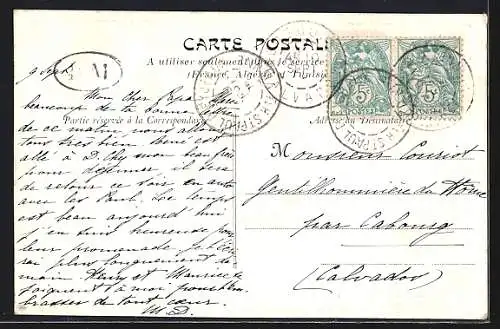 CARTE POSTALE
A utiliser seulement
(France, Algérie et Tunisie
Partie réservée à la Correspondance
Adresse du Destinataire
M
9 Sept.
Mon Cher
beaucoup de ta bonne
de ce matin, nous allons
tous très bien. René est
allé à mon
pour déjeuner il sera
de retour ce soir en auto
avec les Paul. Le temps
est beau aujourd'hui
j'en suis heureuse pour
leur promenade je t'écri
rai plus longuement de
main Henry et Maurice te
joignent à moi pour t'em
brasser de tout cœur.
M. D.
5c
5c
Monsieur
Gentilhommière du Home
par Cabourg
(Calvados)